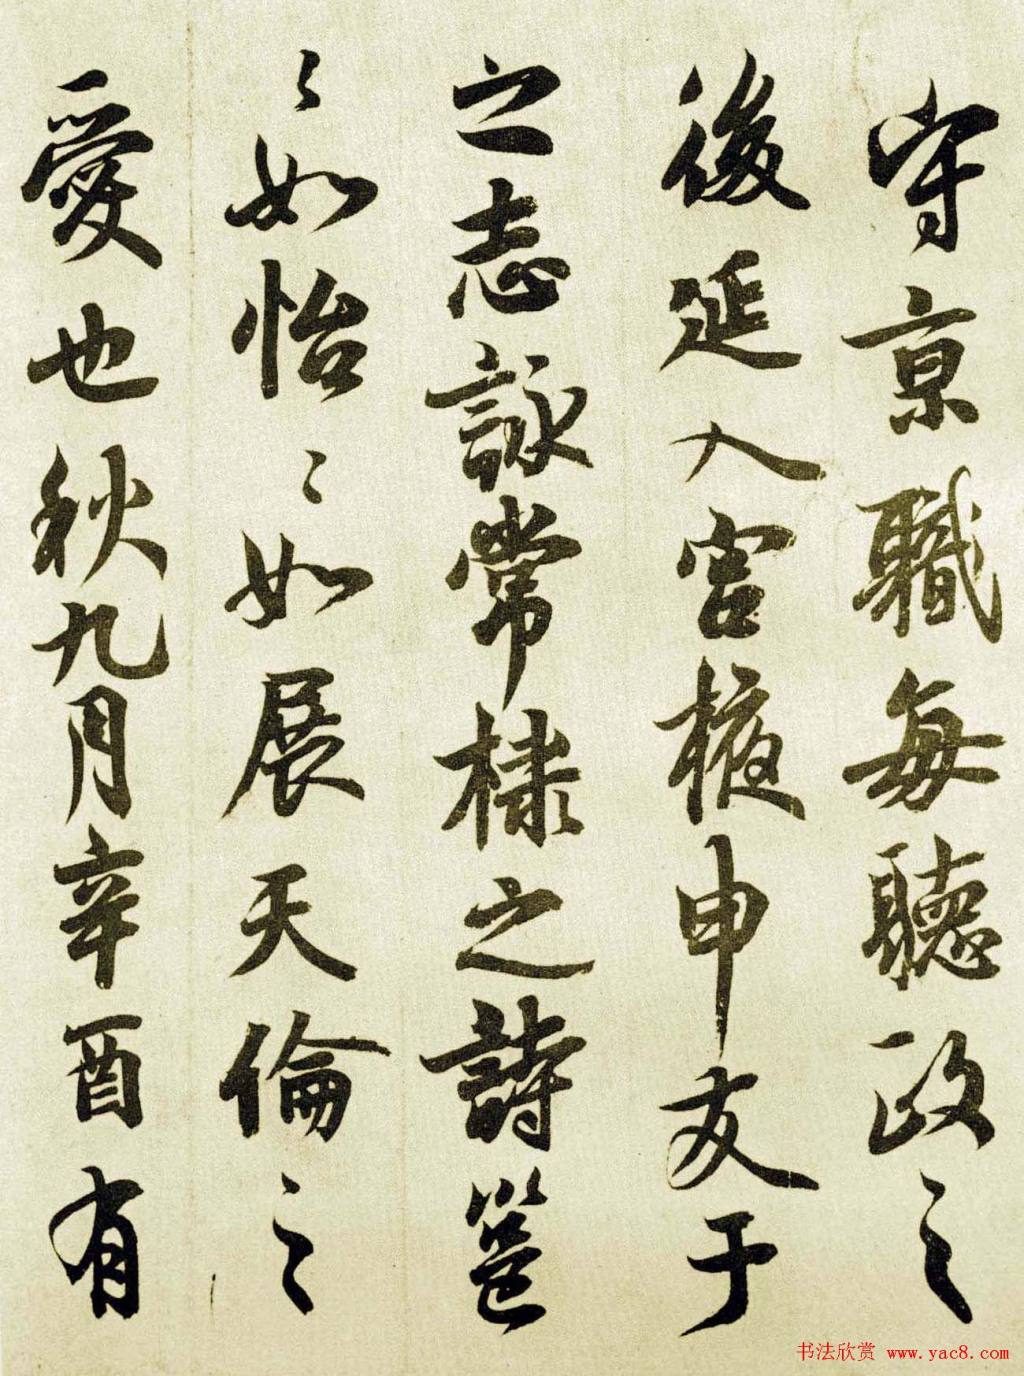 守京職每聽政之
後延入宫掖申友于
之志詠常棣之詩邕
〻如怡〻如展天倫之
愛也秋九月辛酉有
书法欣赏 www.yac8.com